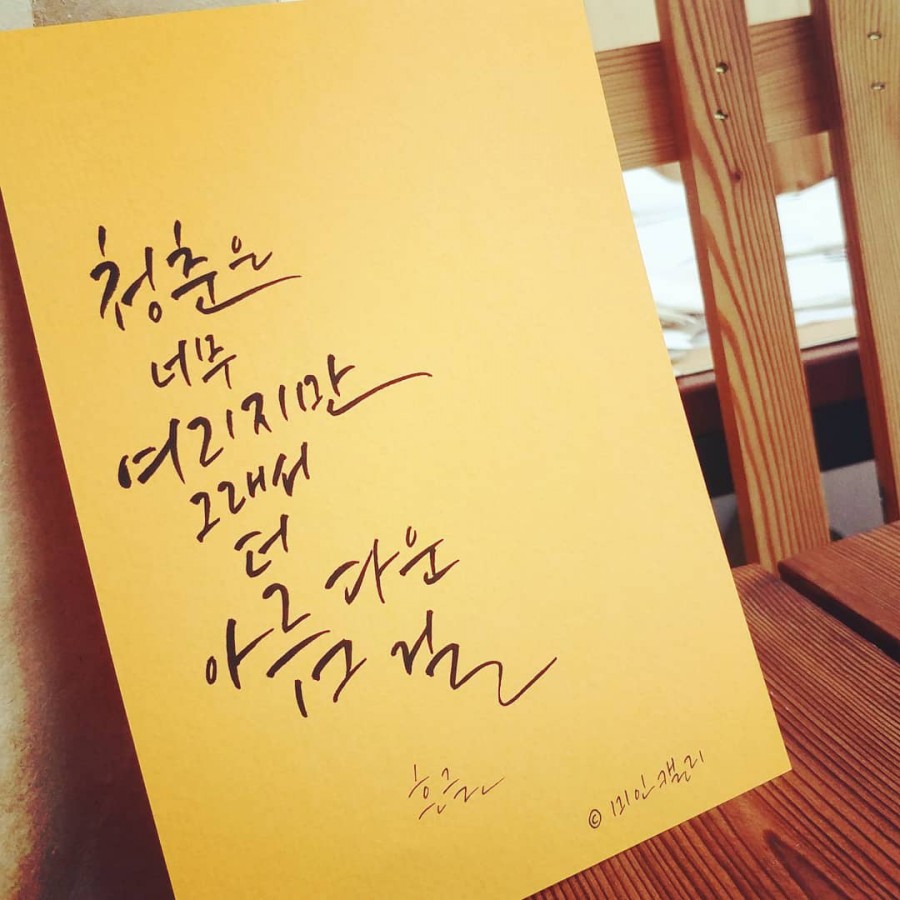 청춘은
너무
여리지만
그래서
더
아름다운
걸
흔글
© 미인캘리